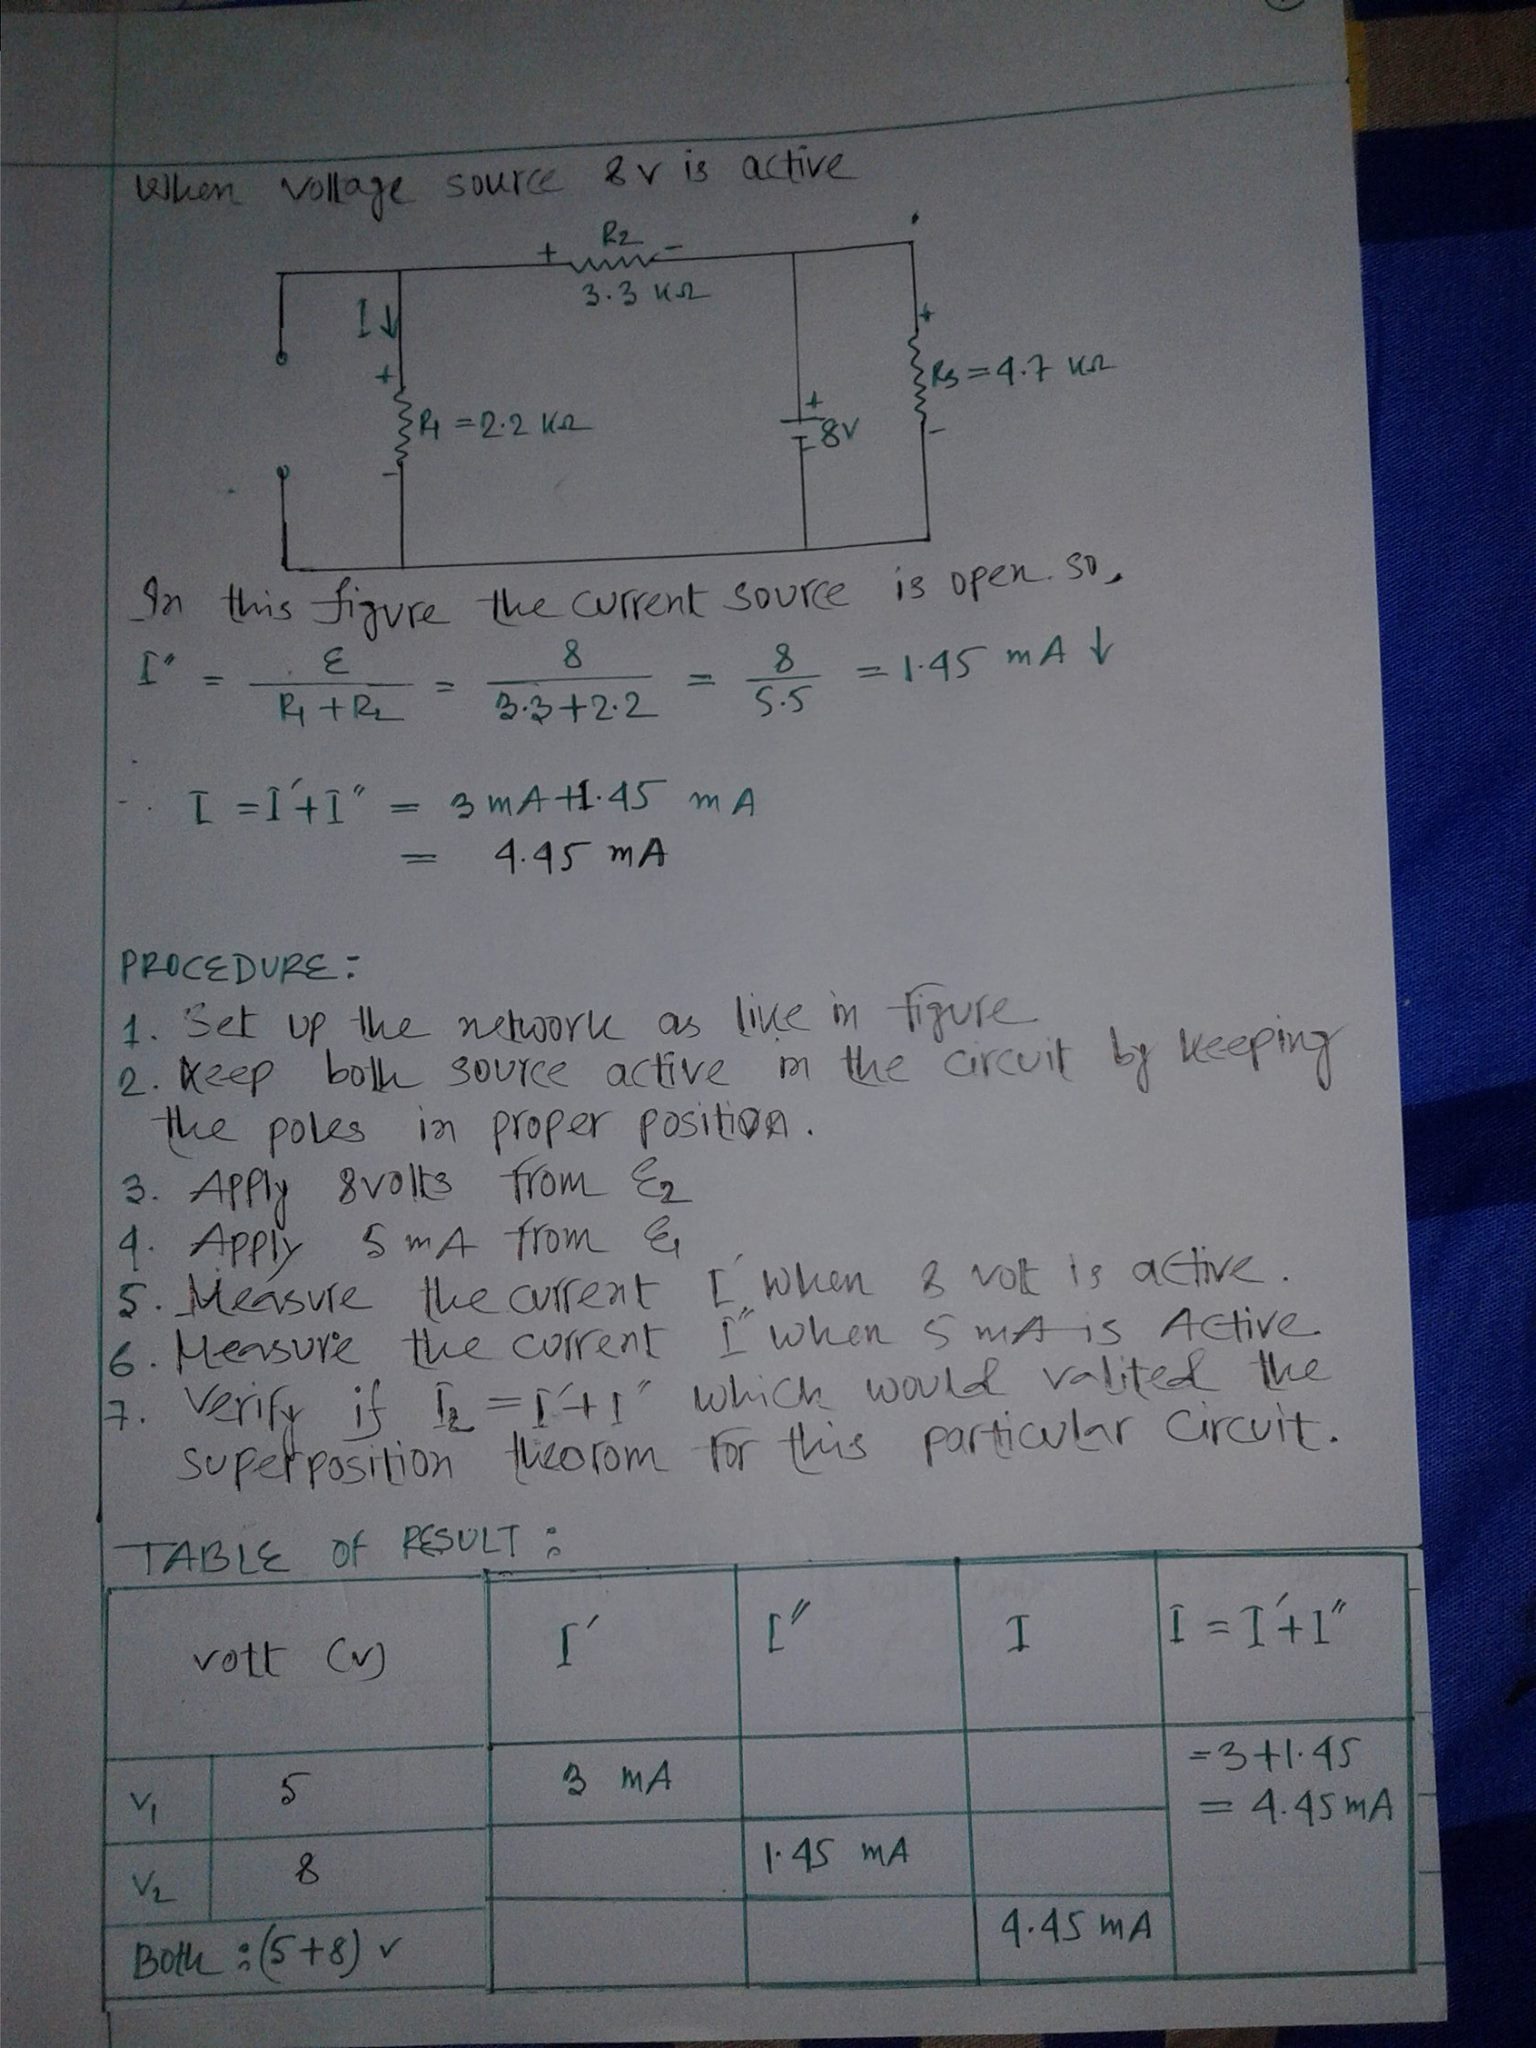 When voltage source 8v is active
R2
+ -
3.3 KΩ
I↓
+
R1 =2.2 KΩ
-
+
8V
+
R3=4.7 KΩ
-
In this figure the current source is open. so,
I" = ε / R1+R2 = 8 / 3.3+2.2 = 8 / 5.5 = 1.45 mA ↓
∴ I = I'+I" = 3 mA+1.45 mA
= 4.45 mA
PROCEDURE:
1. Set up the network as like in figure
2. Keep both source active in the circuit by keeping
the poles in proper position.
3. Apply 8volts from ε2
4. Apply 5 mA from ε1
5. Measure the current I' when 8 volt is active.
6. Measure the current I" when 5 mA is Active.
7. Verify if I2 = I'+I" which would valited the
superposition theorom for this particular circuit.
TABLE OF RESULT:
vott (v) I' I" I I = I'+I"
V1 5 3 mA =3+1.45
= 4.45mA
V2 8 1.45 mA
Both :(5+8) v 4.45 mA